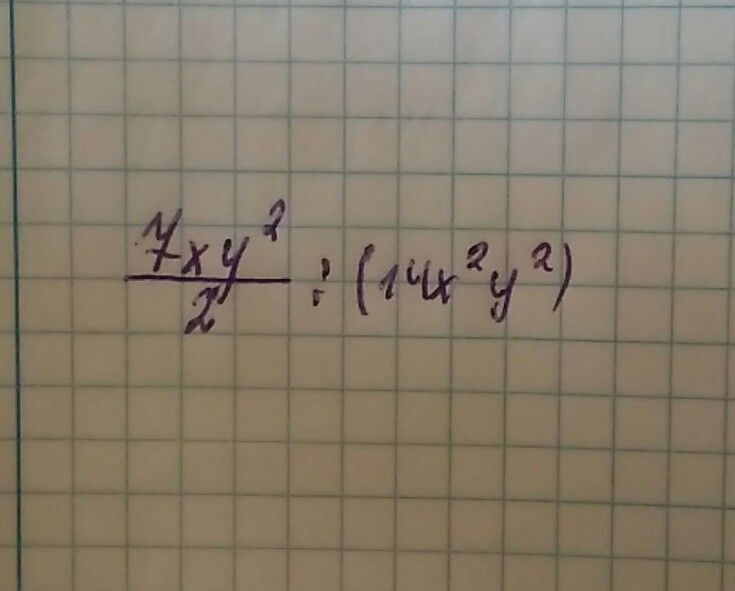 \frac{7xy^2}{2} : (14x^2y^2)